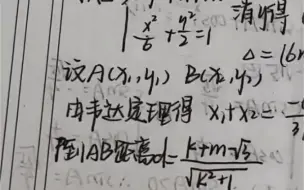 消y得
x²/6 + y²/2 = 1
Δ = (6
设A(x₁,y₁) B(x₂,y₂)
由韦达定理得 x₁+x₂ = -
AB距离d = k+m-√3 / √k²+1